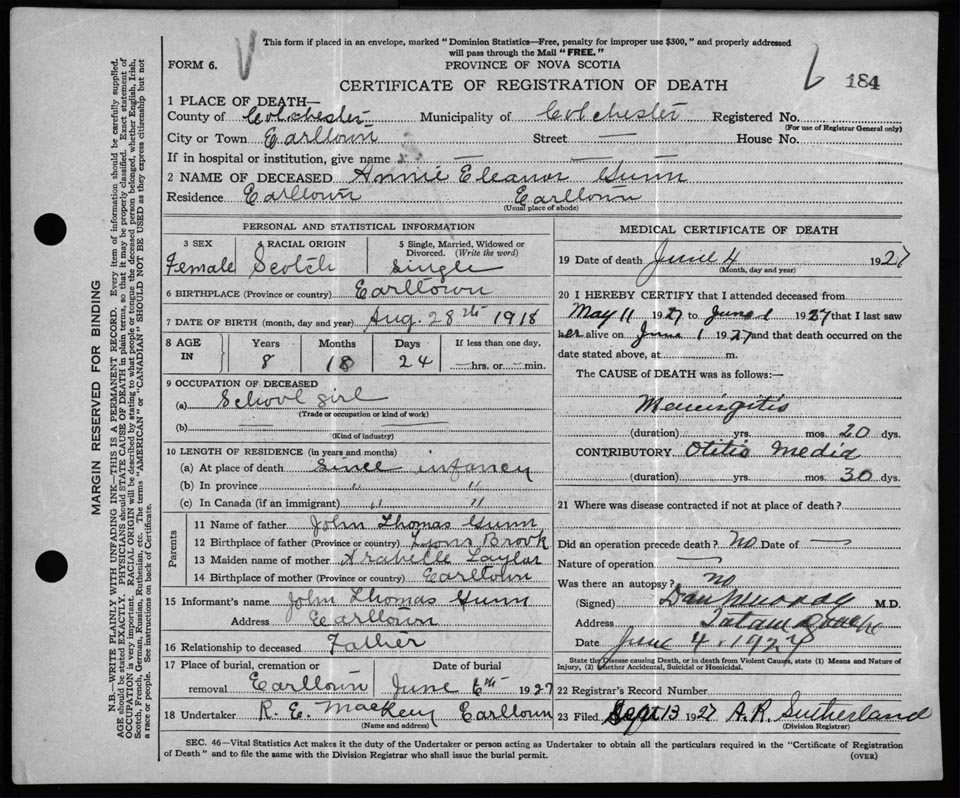 This form if placed in an envelope, marked "Dominion Statistics—Free, penalty for improper use $300," and properly addressed
will pass through the Mail "FREE."
FORM 6.
PROVINCE OF NOVA SCOTIA
CERTIFICATE OF REGISTRATION OF DEATH
184
1 PLACE OF DEATH—
County of Colchester Municipality of Colchester Registered No.
(For use of Registrar General only)
City or Town Earltown Street — House No.
If in hospital or institution, give name — —
2 NAME OF DECEASED Annie Eleanor Gunn
Residence Earltown Earltown
(Usual place of abode)
PERSONAL AND STATISTICAL INFORMATION
3 SEX 4 RACIAL ORIGIN 5 Single, Married, Widowed or Divorced. (Write the word)
Female Scotch Single
6 BIRTHPLACE (Province or country) Earltown
7 DATE OF BIRTH (month, day and year) Aug. 28th 1918
8 AGE IN Years Months Days If less than one day,
8 18 24 hrs. or min.
9 OCCUPATION OF DECEASED
(a) School girl
(Trade or occupation or kind of work)
(b) — —
(Kind of industry)
10 LENGTH OF RESIDENCE (in years and months)
(a) At place of death since infancy
(b) In province " "
(c) In Canada (if an immigrant) " "
Parents
11 Name of father John Thomas Gunn
12 Birthplace of father (Province or country) Lyons Brook
13 Maiden name of mother Arabelle Taylor
14 Birthplace of mother (Province or country) Earltown
15 Informant's name John Thomas Gunn
Address Earltown
16 Relationship to deceased Father
17 Place of burial, cremation or removal Earltown Date of burial June 6th 1927
18 Undertaker R. E. MacKay Earltown
(Name and address)
MEDICAL CERTIFICATE OF DEATH
19 Date of death June 4 1927
(Month, day and year)
20 I HEREBY CERTIFY that I attended deceased from
May 11 1927 to June 1 1927 that I last saw
her alive on June 1 1927 and that death occurred on the
date stated above, at m.
The CAUSE OF DEATH was as follows:—
Meningitis
(duration) yrs. mos. 20 dys.
CONTRIBUTORY Otitis Media
(duration) yrs. mos. 30 dys.
21 Where was disease contracted if not at place of death?
Did an operation precede death? No Date of —
Nature of operation —
Was there an autopsy? no
(Signed) Dan Murray M.D.
Address Tatamagouche
Date June 4, 1927
State the Disease causing Death, or in death from Violent Causes, state (1) Means and Nature of
Injury, (2) whether Accidental, Suicidal or Homicidal.
22 Registrar's Record Number
23 Filed Sept 13 1927 A. R. Sutherland
(Division Registrar)
SEC. 46—Vital Statistics Act makes it the duty of the Undertaker or person acting as Undertaker to obtain all the particulars required in the "Certificate of Registration
of Death" and to file the same with the Division Registrar who shall issue the burial permit.
(OVER)
MARGIN RESERVED FOR BINDING
N.B.—WRITE PLAINLY WITH UNFADING INK—THIS IS A PERMANENT RECORD. Every item of information should be carefully supplied.
AGE should be stated EXACTLY. PHYSICIANS should STATE CAUSE OF DEATH in plain terms, so that it may be properly classified. Exact statement of
OCCUPATION is very important. RACIAL ORIGIN will be described by stating to what people or tongue the deceased person belonged, whether English, Irish,
Scotch, French, German, Russian, Ruthenian, etc. The terms "AMERICAN" or "CANADIAN" SHOULD NOT BE USED as they express citizenship but not
a race or people. See instructions on back of Certificate.